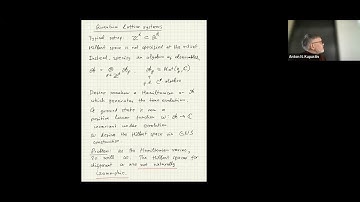 Quantum lattice systems
Typical setup: ℤᵈ ⊂ ℝᵈ
Hilbert space is not specified at the outset
Instead, specify an algebra of observables
𝒜 = ⊗ 𝒜ₚ 𝒜ₚ = Mat(q, ℂ)
p∈ℤᵈ
C* algebra
Define somehow a Hamiltonian on 𝒜
which generates the time evolution
A ground state is now a
positive linear function ω: 𝒜 → ℂ
invariant under evolution
ω defines the Hilbert space via GNS
construction
Problem: as the Hamiltonian varies,
so will ω. The Hilbert spaces for
different ω are not naturally
isomorphic.
Anton N. Kapustin